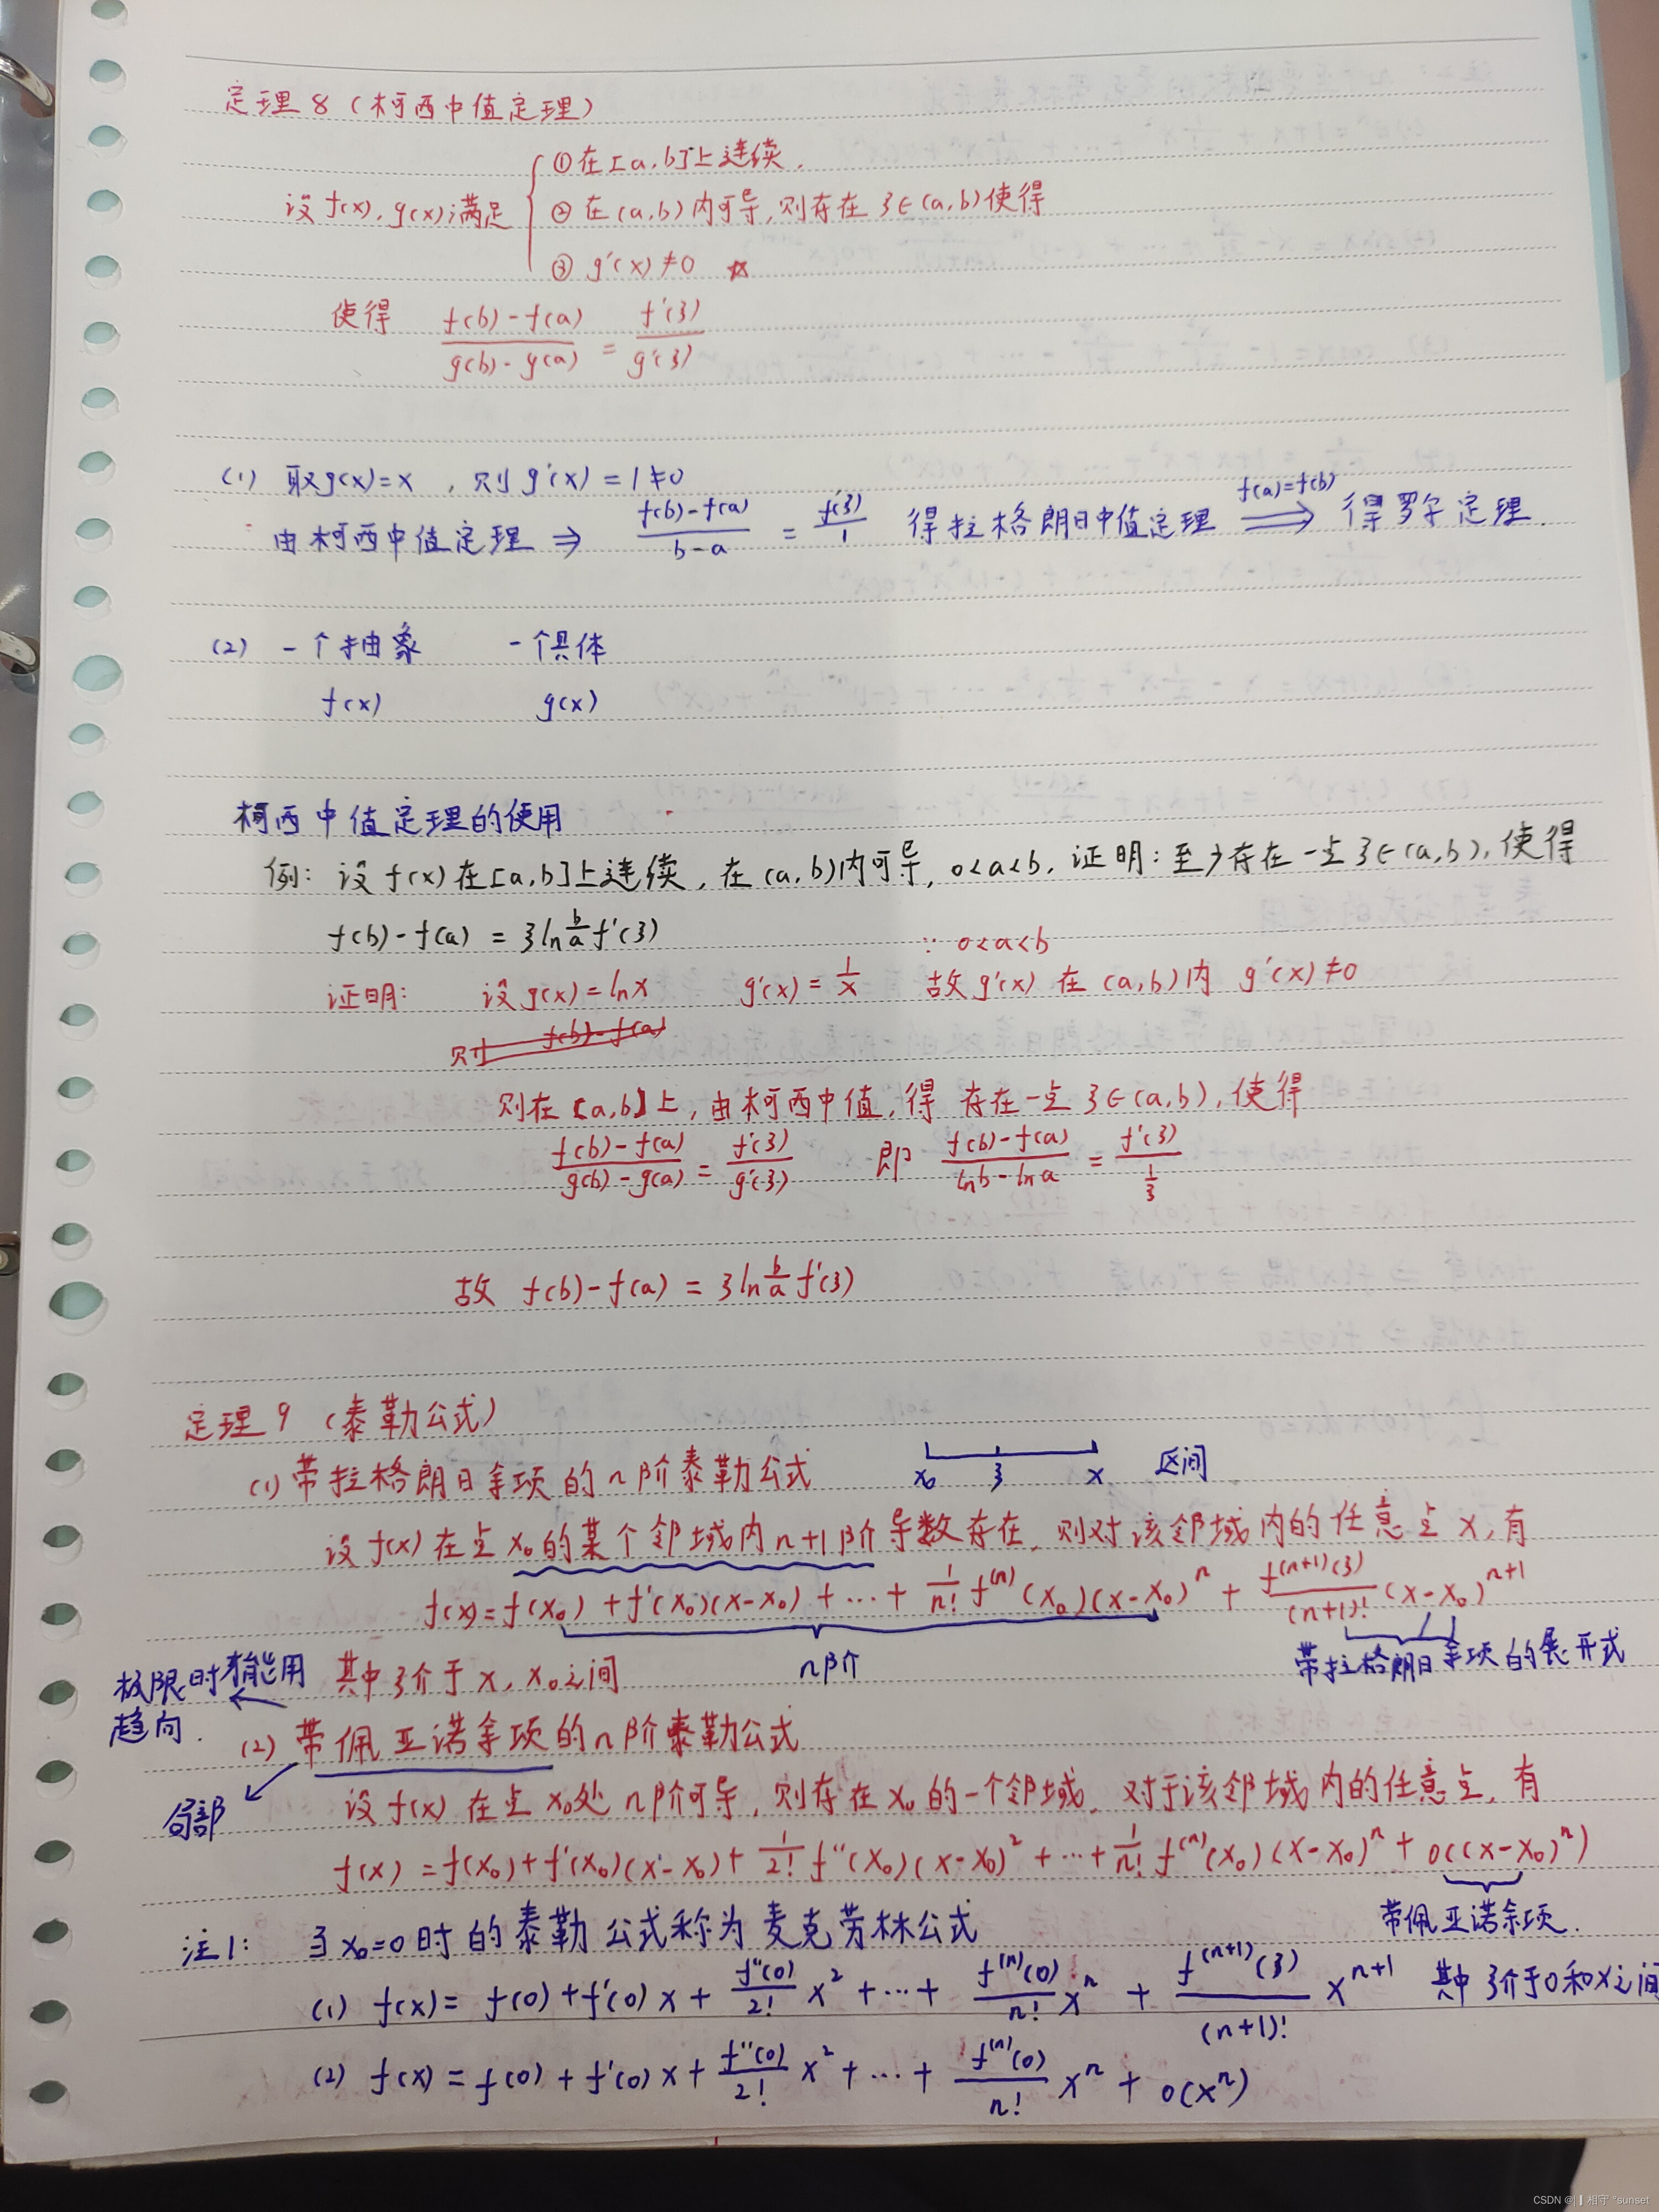 定理8（柯西中值定理）
①在[a,b]上连续,
设f(x),g(x)满足 ②在(a,b)内可导,则存在ξ∈(a,b)使得
③g'(x)≠0 ☆
使得 (f(b)-f(a))/(g(b)-g(a)) = f'(ξ)/g'(ξ)
(1) 取g(x)=x ,则g'(x)=1≠0
由柯西中值定理 ⇒ (f(b)-f(a))/(b-a) = f'(ξ)/1 得拉格朗日中值定理 ⇒ f(a)=f(b) 得罗尔定理.
(2) 一个抽象 一个具体
f(x) g(x)
柯西中值定理的使用
例: 设f(x)在[a,b]上连续,在(a,b)内可导,0<a<b,证明:至少存在一点ξ∈(a,b),使得
f(b)-f(a) = ξ ln(b/a) f'(ξ)
∵ 0<a<b
证明: 设g(x)=lnx g'(x)=1/x 故g'(x)在(a,b)内 g'(x)≠0
则 f(b)-f(a)
则在[a,b]上,由柯西中值,得 存在一点ξ∈(a,b),使得
(f(b)-f(a))/(g(b)-g(a)) = f'(ξ)/g'(ξ) 即 (f(b)-f(a))/(lnb-lna) = f'(ξ)/(1/ξ)
故 f(b)-f(a) = ξ ln(b/a) f'(ξ)
定理9（泰勒公式）
(1)带拉格朗日余项的n阶泰勒公式 x₀ ξ x 区间
设f(x)在点x₀的某个邻域内n+1阶导数存在,则对该邻域内的任意点x,有
f(x)=f(x₀)+f'(x₀)(x-x₀)+…+(1/n!)f⁽ⁿ⁾(x₀)(x-x₀)ⁿ + (f⁽ⁿ⁺¹⁾(ξ)/(n+1)!)(x-x₀)ⁿ⁺¹
n阶 带拉格朗日余项的展开式
其中ξ介于x,x₀之间
极限时才能用
趋向.
(2)带佩亚诺余项的n阶泰勒公式
局部
设f(x)在点x₀处n阶可导,则存在x₀的一个邻域,对于该邻域内的任意点,有
f(x)=f(x₀)+f'(x₀)(x-x₀)+(1/2!)f''(x₀)(x-x₀)²+…+(1/n!)f⁽ⁿ⁾(x₀)(x-x₀)ⁿ+o((x-x₀)ⁿ)
带佩亚诺余项.
注1: 当x₀=0时的泰勒公式称为麦克劳林公式
(1) f(x)=f(0)+f'(0)x+(f''(0)/2!)x²+…+(f⁽ⁿ⁾(0)/n!)xⁿ+(f⁽ⁿ⁺¹⁾(ξ)/(n+1)!)xⁿ⁺¹ 其中ξ介于0和x之间
(2) f(x)=f(0)+f'(0)x+(f''(0)/2!)x²+…+(f⁽ⁿ⁾(0)/n!)xⁿ+o(xⁿ)
CSDN @‖相守°sunset